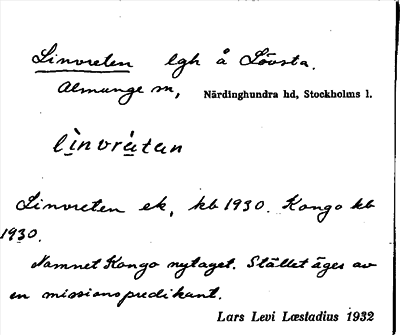 Linvreten lgh å Lövsta.
Almunge sn, Närdinghundra hd, Stockholms l.
lìnvràtan
Linvreten ek, kb 1930. Kongo kb
1930.
Namnet Kongo nytaget. Stället äges av
en missionspredikant.
Lars Levi Læstadius 1932